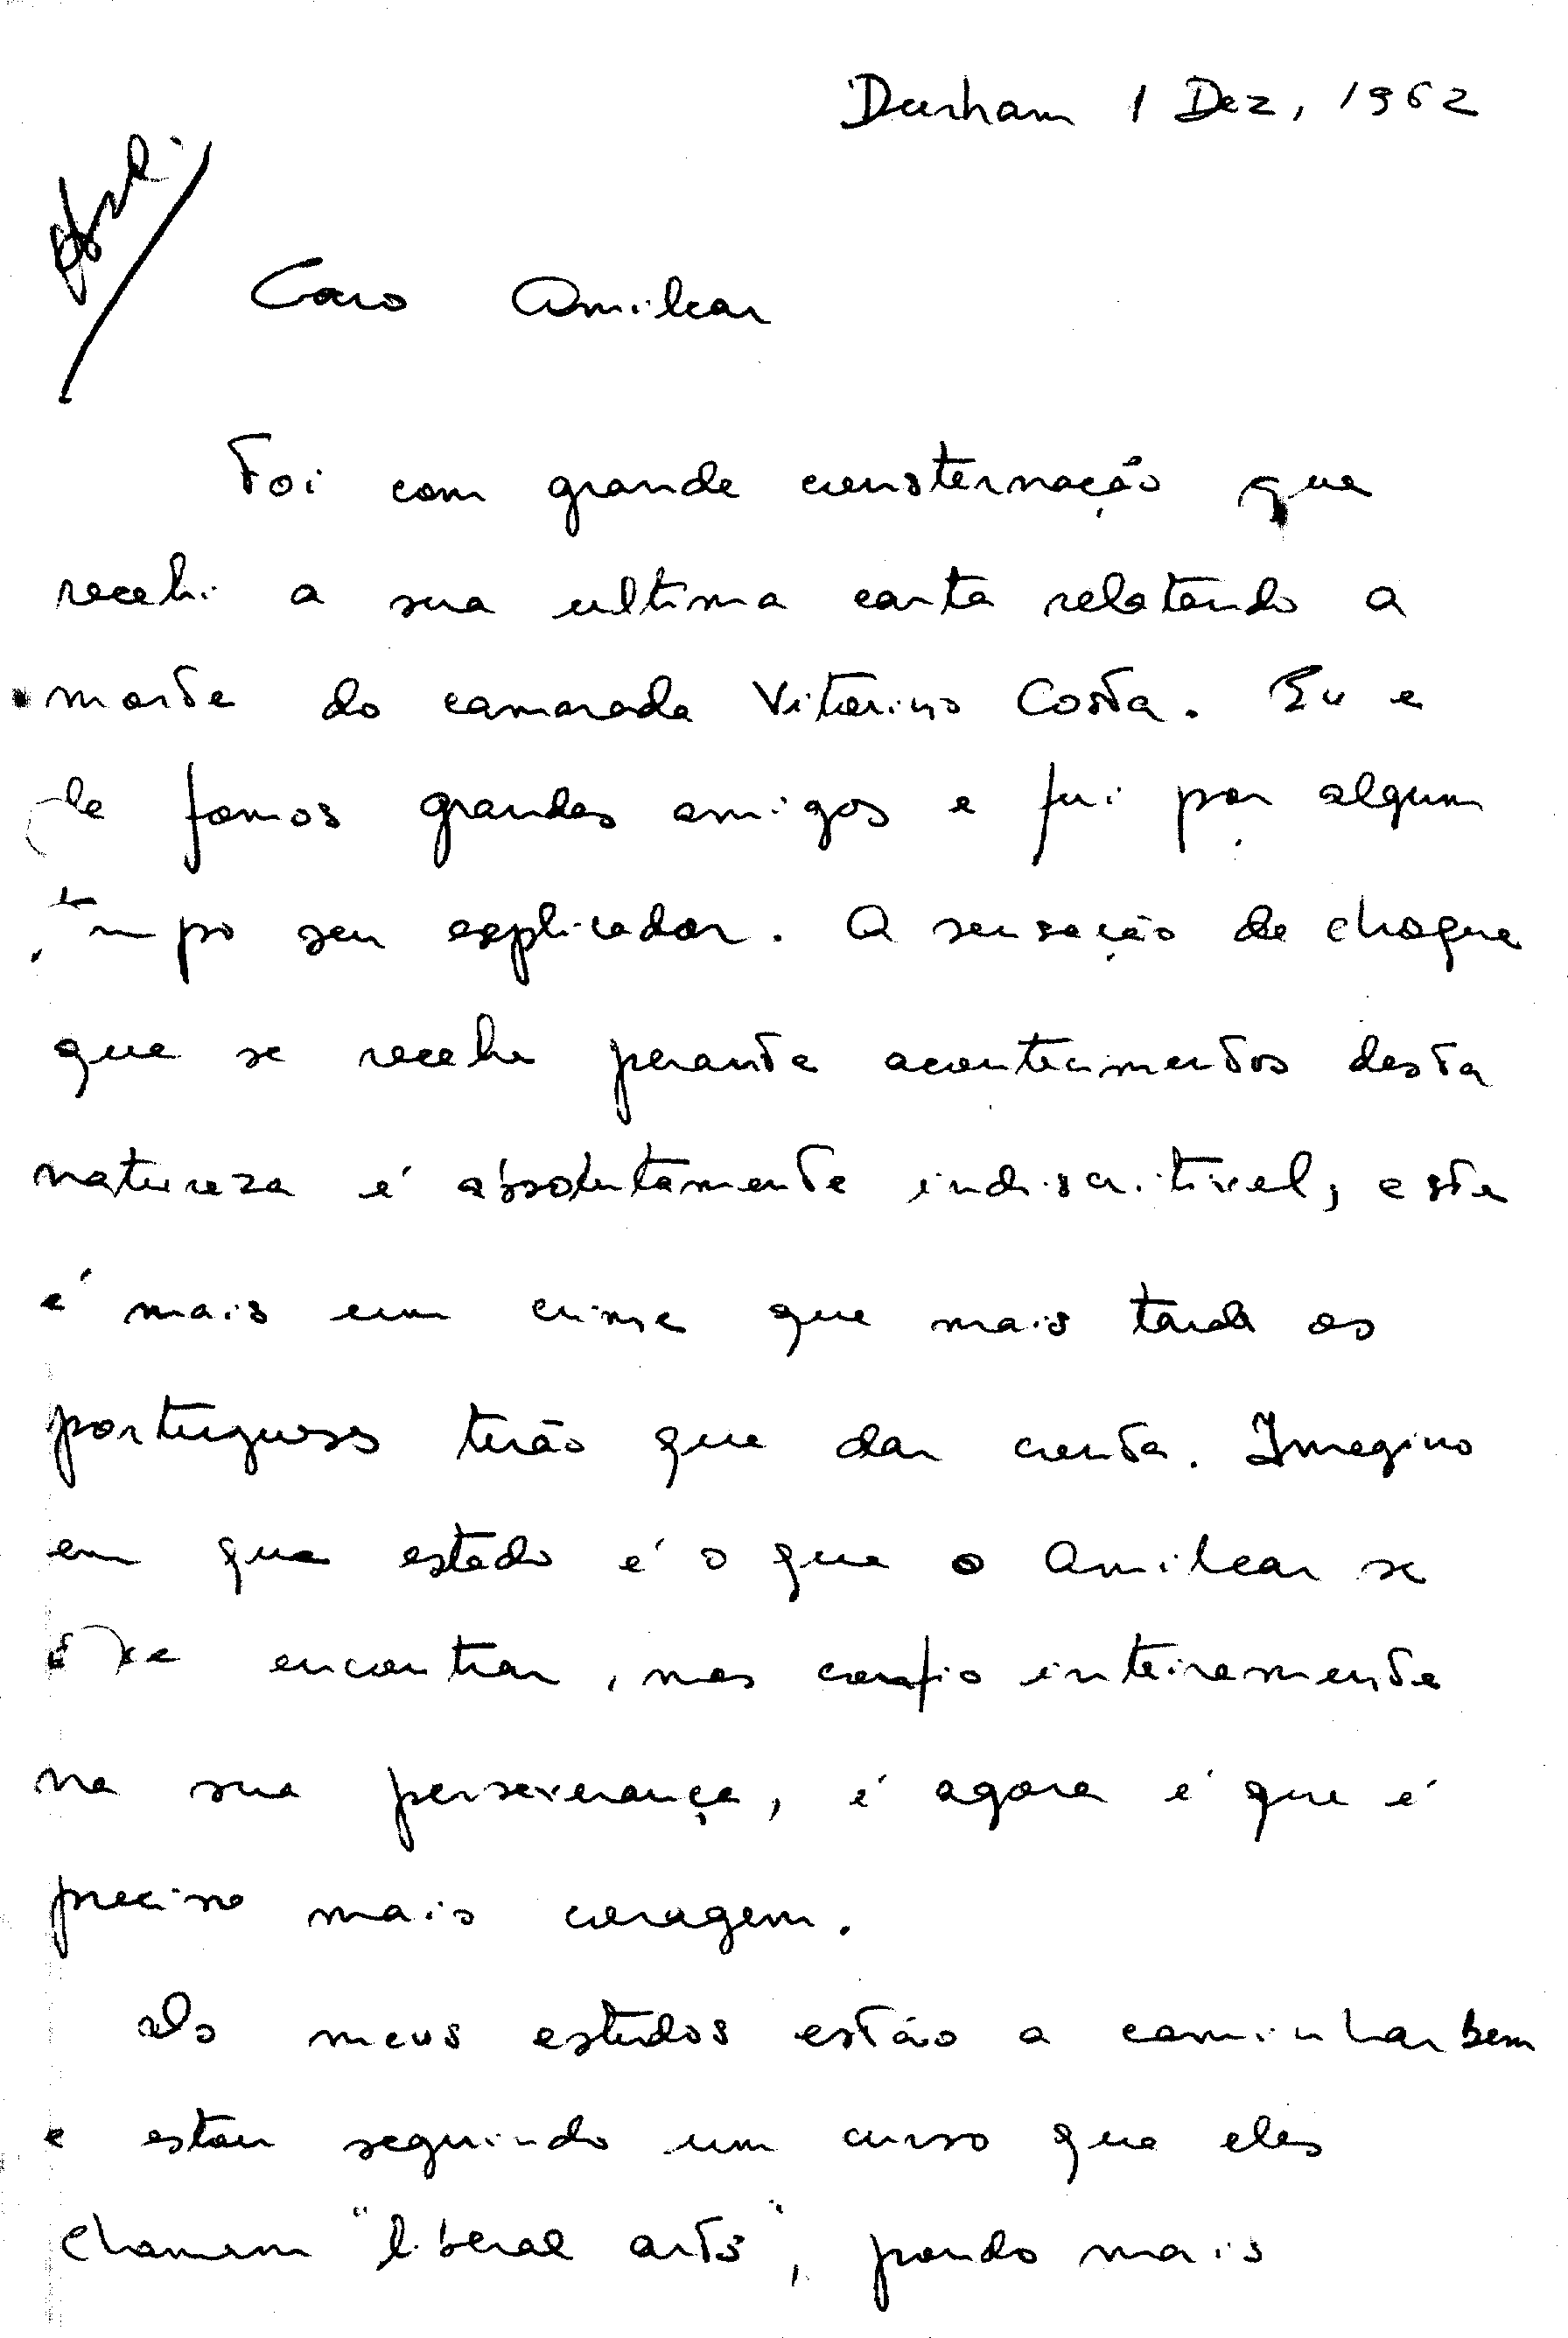 Durham 1 Dez, 1962
Caro Amilcar
Foi com grande consternação que
recebi a sua ultima carta relatando a
morte do camarada Vitorino Costa. Eu e
ele fomos grandes amigos e fui por algum
tempo seu explicador. A sensação de choque
que se recebe perante acontecimentos desta
natureza é absolutamente indiscritivel, este
é mais um crime que mais tarde os
portugueses terão que dar conta. Imagino
em que estado é o que o Amilcar se
encontrar, mas confio inteiramente
na sua perseverança, é agora é que é
preciso mais coragem.
Os meus estudos estão a caminhar bem
e estou seguindo um curso que eles
chamam "liberal arts", pondo mais